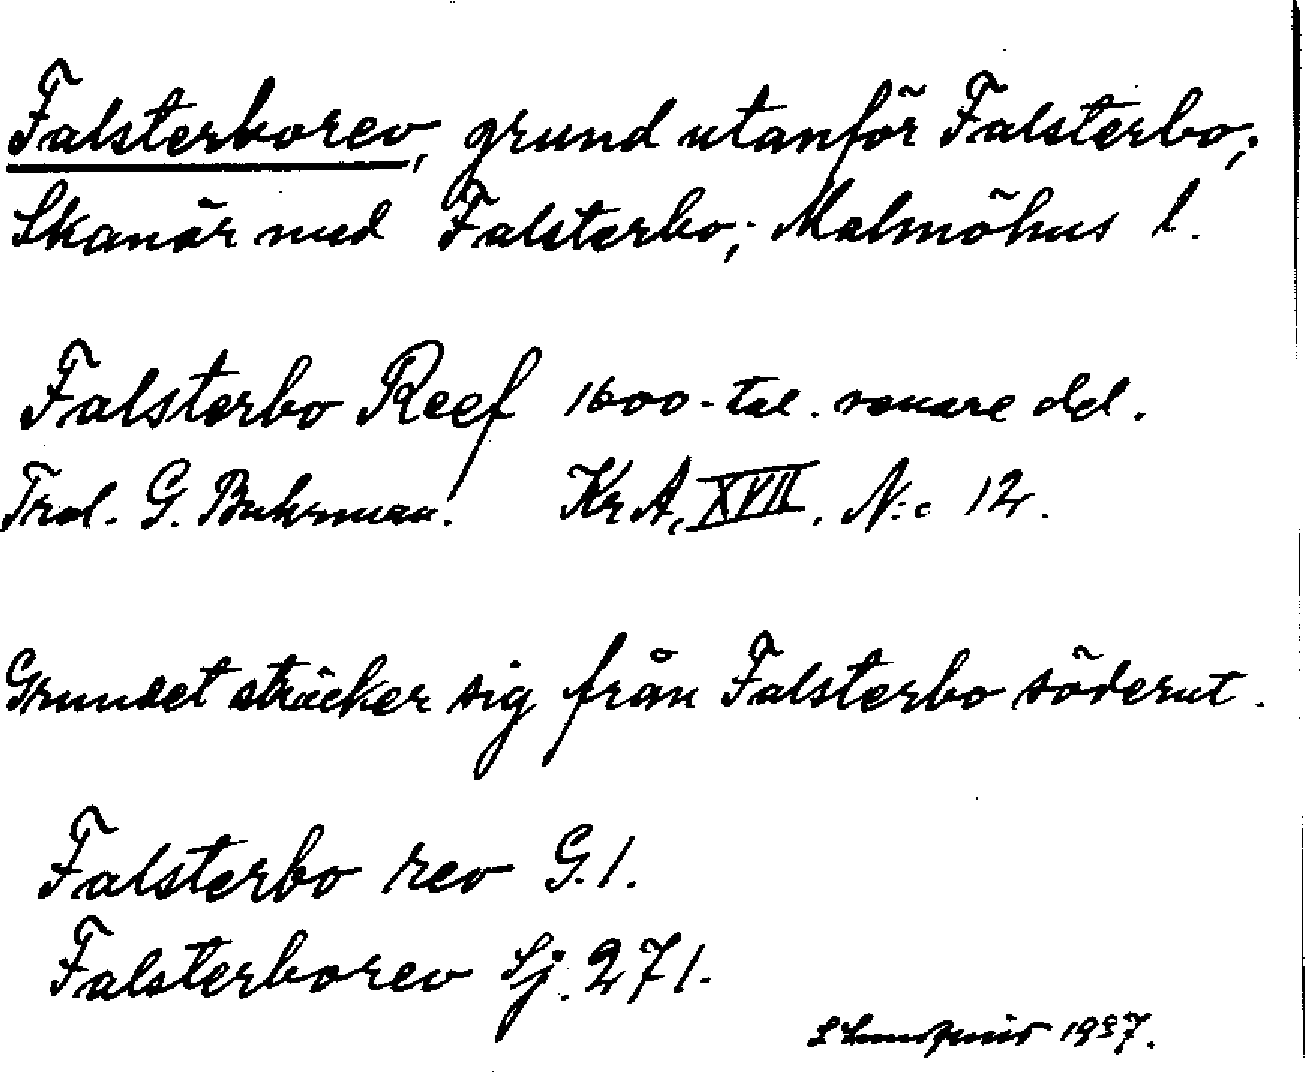 Falsterborev, grund utanför Falsterbo;
Skanör med Falsterbo; Malmöhus l.
Falsterbo Reef 1600-tal. senare del.
Trol. G. Buhrman. KrA, XVII. N:o 12.
Grundet sträcker sig från Falsterbo söderut.
Falsterbo rev G.1.
Falsterborev Sj. 271.
1937.